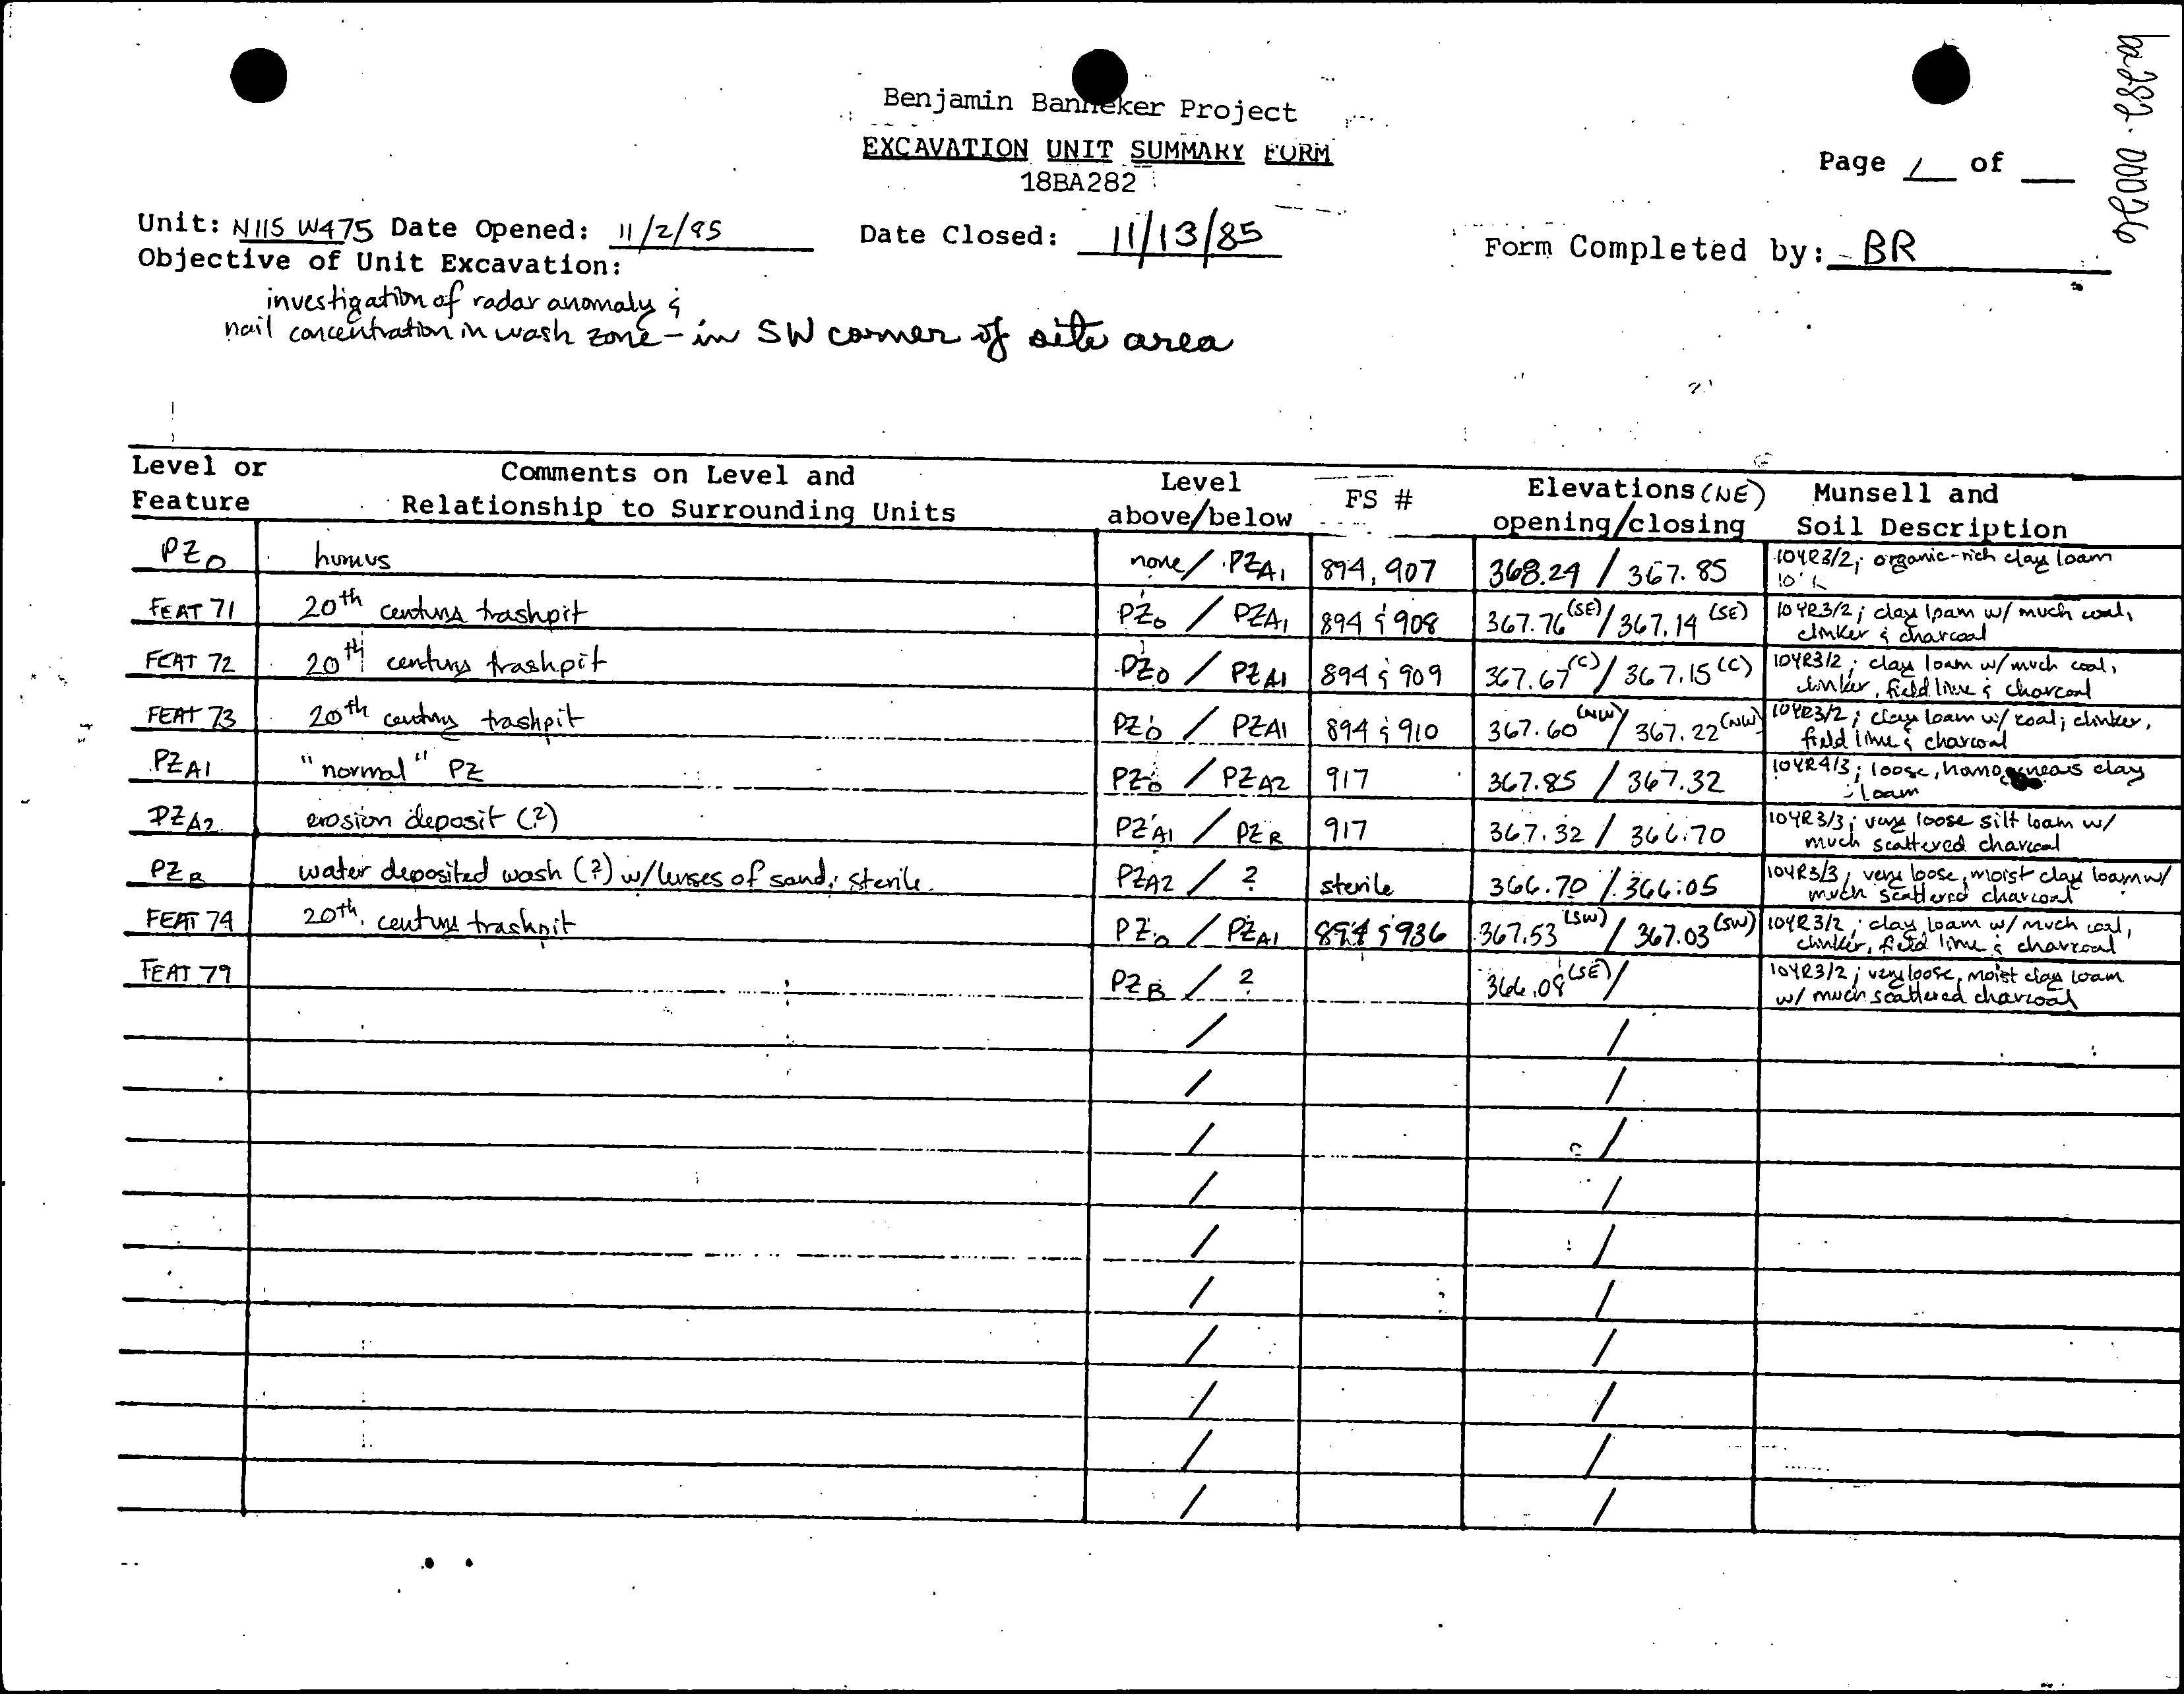 ba282-00026
Benjamin Banneker Project
EXCAVATION UNIT SUMMARY FORM
18BA282
Page 1 of
Unit: N115 W475 Date Opened: 11/2/85 Date Closed: 11/13/85 Form Completed by: BR
Objective of Unit Excavation:
investigation of radar anomaly &
nail concentration in wash zone - in SW corner of site area
Level or Feature | Comments on Level and Relationship to Surrounding Units | Level above/below | FS # | Elevations (NE) opening/closing | Munsell and Soil Description
PZ0 | humus | none / PZA1 | 894, 907 | 368.24 / 367.85 | 10YR3/2; organic-rich clay loam
FEAT 71 | 20th century trashpit | PZ0 / PZA1 | 894 & 908 | 367.76 (SE) / 367.14 (SE) | 10YR3/2; clay loam w/ much coal, clinker & charcoal
FEAT 72 | 20th century trashpit | PZ0 / PZA1 | 894 & 909 | 367.67 (C) / 367.15 (C) | 10YR3/2; clay loam w/ much coal, clinker, field lime & charcoal
FEAT 73 | 20th century trashpit | PZ0 / PZA1 | 894 & 910 | 367.60 (NW) / 367.22 (NW) | 10YR3/2; clay loam w/ coal; clinker, field lime & charcoal
PZA1 | "normal" PZ | PZ0 / PZA2 | 917 | 367.85 / 367.32 | 10YR4/3; loose, homogeneous clay loam
PZA2 | erosion deposit (?) | PZA1 / PZB | 917 | 367.32 / 366.70 | 10YR3/3; very loose silt loam w/ much scattered charcoal
PZB | water deposited wash (?) w/ lenses of sand; sterile | PZA2 / ? | sterile | 366.70 / 366.05 | 10YR3/3, very loose, moist clay loam w/ much scattered charcoal
FEAT 74 | 20th century trashpit | PZ0 / PZA1 | 894 & 936 | 367.53 (SW) / 367.03 (SW) | 10YR3/2; clay loam w/ much coal, clinker, field lime & charcoal
FEAT 79 | PZB / ? | 366.08 (SE) / | 10YR3/2; very loose, moist clay loam w/ much scattered charcoal